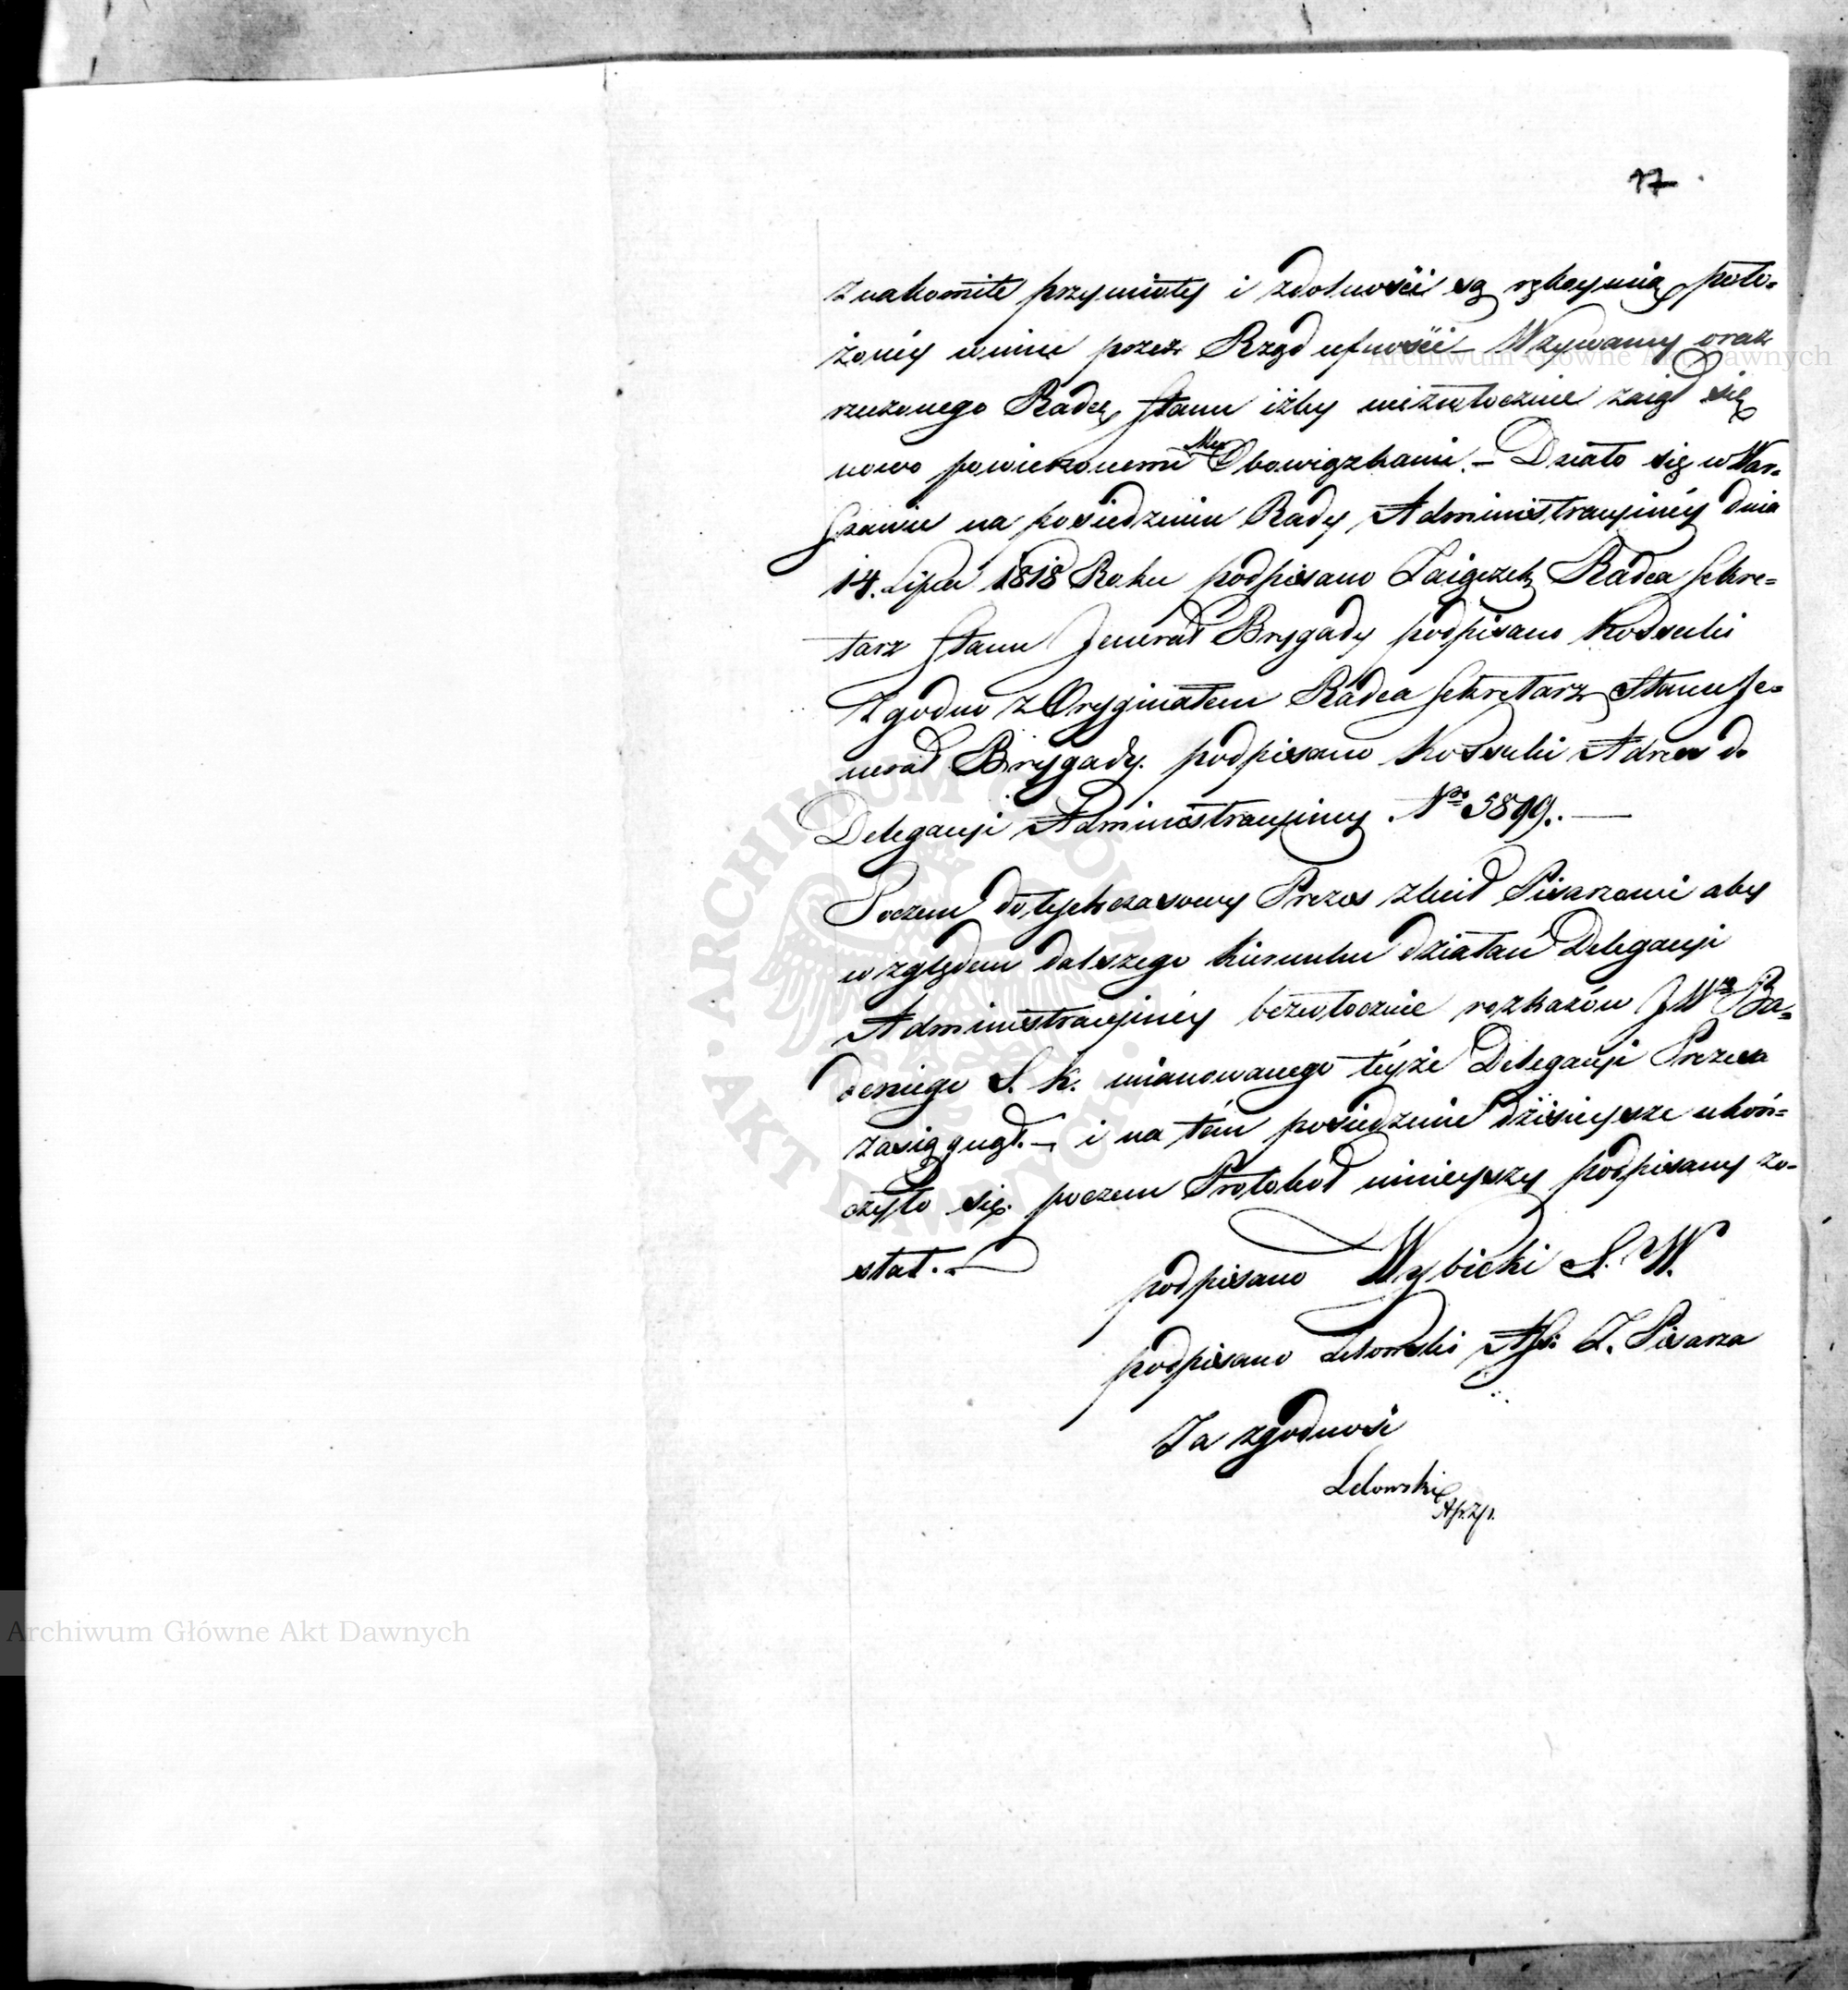 17.
znakomite przymioty i zdolności są rękoymią poło-
żonéy w nim przez Rząd ufności – Wzywamy oraz
rzeczonego Radcę Stanu iżby niezwłocznie zaiął się
nowo powierzonemi Mu Obowiązkami. – Działo się w War-
szawie na posiedzeniu Rady Administracyinéy dnia
14. Lipca 1818 Roku podpisano Zaiączek Radca Sekre-
tarz Stanu Jenerał Brygady podpisano Kossecki
Zgodno z Oryginałem Radca Sekretarz Stanu Je-
nerał Brygady. podpisano Kossecki Adres do
Delegacyi Administracyiney. Nro 5899. —
Poczem dotychczasowy Prezes zlecił Pisarzowi aby
względem dalszego kierunku działań Delegacyi
Administracyinéy bezwłocznie rozkazów JWgo Ba-
deniego S. K. mianowanego téyże Delegacyi Prezesa
zasięgnął. – i na tém posiedzenie dzisieysze ukoń-
czyło się. poczem Protokoł ninieyszy podpisany zo-
stał. –
podpisano Wybicki S. W.
podpisano Lelowski Ass: Z. Pisarza
Za zgodność
Lelowski
Archiwum Główne Akt Dawnych
ARCHIWUM GŁÓWNE · AKT DAWNYCH ·
Archiwum Główne Akt Dawnych